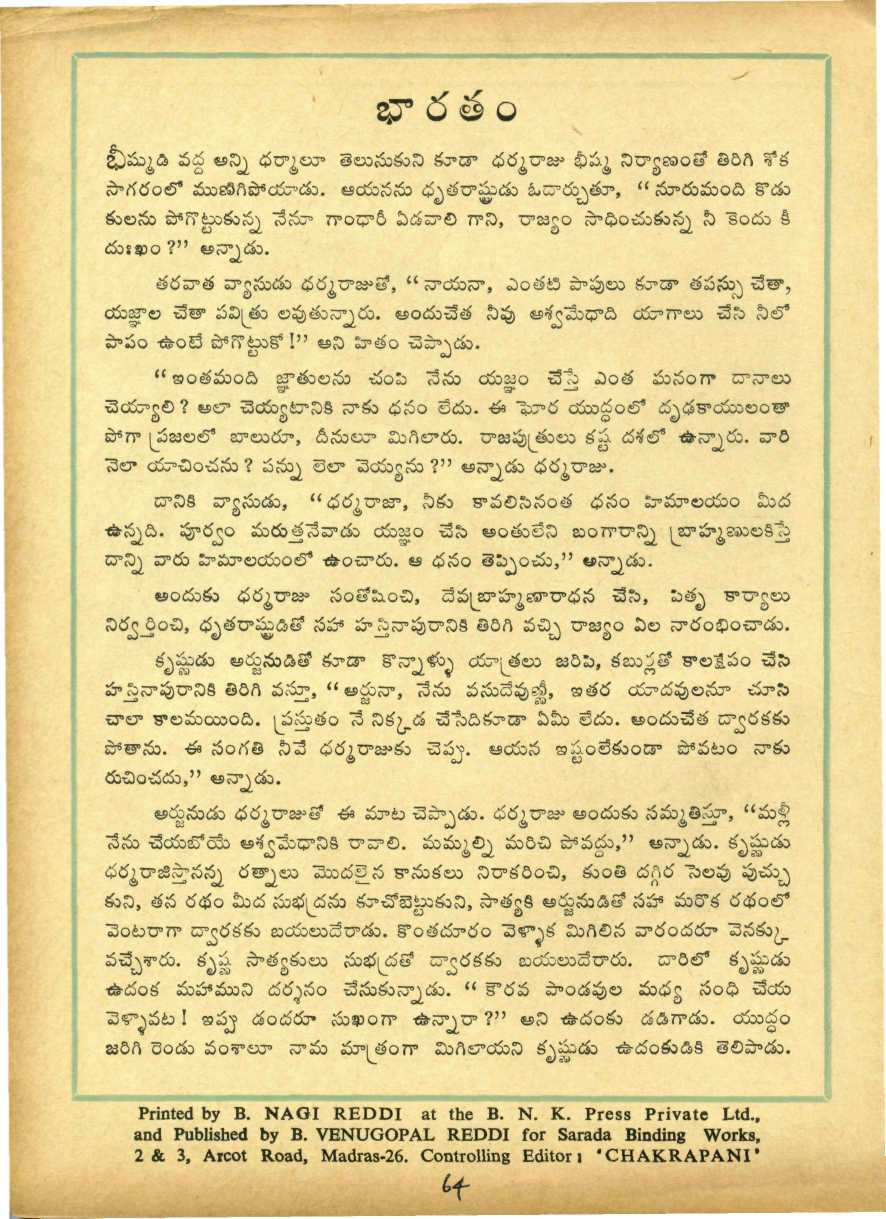 భారతం
భీష్ముడి వద్ద అన్ని ధర్మాలూ తెలుసుకుని కూడా ధర్మరాజు భీష్మ నిర్యాణంతో తిరిగి శోక
సాగరంలో ముణిగిపోయాడు. ఆయనను ధృతరాష్ట్రుడు ఓదార్చుతూ, “నూరుమంది కొడు
కులను పోగొట్టుకున్న నేనూ గాంధారీ ఏడవాలి గాని, రాజ్యం సాధించుకున్న నీ కెందు కీ
దుఃఖం?” అన్నాడు.
తరవాత వ్యాసుడు ధర్మరాజుతో, “నాయనా, ఎంతటి పాపులు కూడా తపస్సు చేతా,
యజ్ఞాల చేతా పవిత్రు లవుతున్నారు. అందుచేత నీవు అశ్వమేధాది యాగాలు చేసి నీలో
పాపం ఉంటే పోగొట్టుకో!” అని హితం చెప్పాడు.
“ఇంతమంది జ్ఞాతులను చంపి నేను యజ్ఞం చేస్తే ఎంత ఘనంగా దానాలు
చెయ్యాలి? అలా చెయ్యటానికి నాకు ధనం లేదు. ఈ ఘోర యుద్ధంలో దృఢకాయులంతా
పోగా ప్రజలలో బాలురూ, దీనులూ మిగిలారు. రాజపుత్రులు కష్ట దశలో ఉన్నారు. వారి
నెలా యాచించను? పన్ను లెలా వెయ్యను?” అన్నాడు ధర్మరాజు.
దానికి వ్యాసుడు, “ధర్మరాజా, నీకు కావలిసినంత ధనం హిమాలయం మీద
ఉన్నది. పూర్వం మరుత్తనేవాడు యజ్ఞం చేసి అంతులేని బంగారాన్ని బ్రాహ్మణులకిస్తే
దాన్ని వారు హిమాలయంలో ఉంచారు. ఆ ధనం తెప్పించు,” అన్నాడు.
అందుకు ధర్మరాజు సంతోషించి, దేవబ్రాహ్మణారాధన చేసి, పితృ కార్యాలు
నిర్వర్తించి, ధృతరాష్ట్రుడితో సహా హస్తినాపురానికి తిరిగి వచ్చి రాజ్యం ఏల నారంభించాడు.
కృష్ణుడు అర్జునుడితో కూడా కొన్నాళ్ళు యాత్రలు జరిపి, కబుర్లతో కాలక్షేపం చేసి
హస్తినాపురానికి తిరిగి వస్తూ, “అర్జునా, నేను వసుదేవుణ్ణీ, ఇతర యాదవులనూ చూసి
చాలా కాలమయింది. ప్రస్తుతం నే నిక్కడ చేసేదికూడా ఏమీ లేదు. అందుచేత ద్వారకకు
పోతాను. ఈ సంగతి నీవే ధర్మరాజుకు చెప్పు. ఆయన ఇష్టంలేకుండా పోవటం నాకు
రుచించదు,” అన్నాడు.
అర్జునుడు ధర్మరాజుతో ఈ మాట చెప్పాడు. ధర్మరాజు అందుకు సమ్మతిస్తూ, “మళ్లీ
నేను చేయబోయే అశ్వమేధానికి రావాలి. మమ్మల్ని మరిచి పోవద్దు,” అన్నాడు. కృష్ణుడు
ధర్మరాజిస్తానన్న రత్నాలు మొదలైన కానుకలు నిరాకరించి, కుంతి దగ్గిర సెలవు పుచ్చు
కుని, తన రథం మీద సుభద్రను కూచోబెట్టుకుని, సాత్యకి అర్జునుడితో సహా మరొక రథంలో
వెంటరాగా ద్వారకకు బయలుదేరాడు. కొంతదూరం వెళ్ళాక మిగిలిన వారందరూ వెనక్కు
వచ్చేశారు. కృష్ణ సాత్యకులు సుభద్రతో ద్వారకకు బయలుదేరారు. దారిలో కృష్ణుడు
ఉదంక మహాముని దర్శనం చేసుకున్నాడు. “కౌరవ పాండవుల మధ్య సంధి చేయ
వెళ్ళావట! ఇప్పు డందరూ సుఖంగా ఉన్నారా?” అని ఉదంకు డడిగాడు. యుద్ధం
జరిగి రెండు వంశాలూ నామ మాత్రంగా మిగిలాయని కృష్ణుడు ఉదంకుడికి తెలిపాడు.
Printed by B. NAGI REDDI at the B. N. K. Press Private Ltd.,
and Published by B. VENUGOPAL REDDI for Sarada Binding Works,
2 & 3, Arcot Road, Madras-26. Controlling Editor: 'CHAKRAPANI'
64